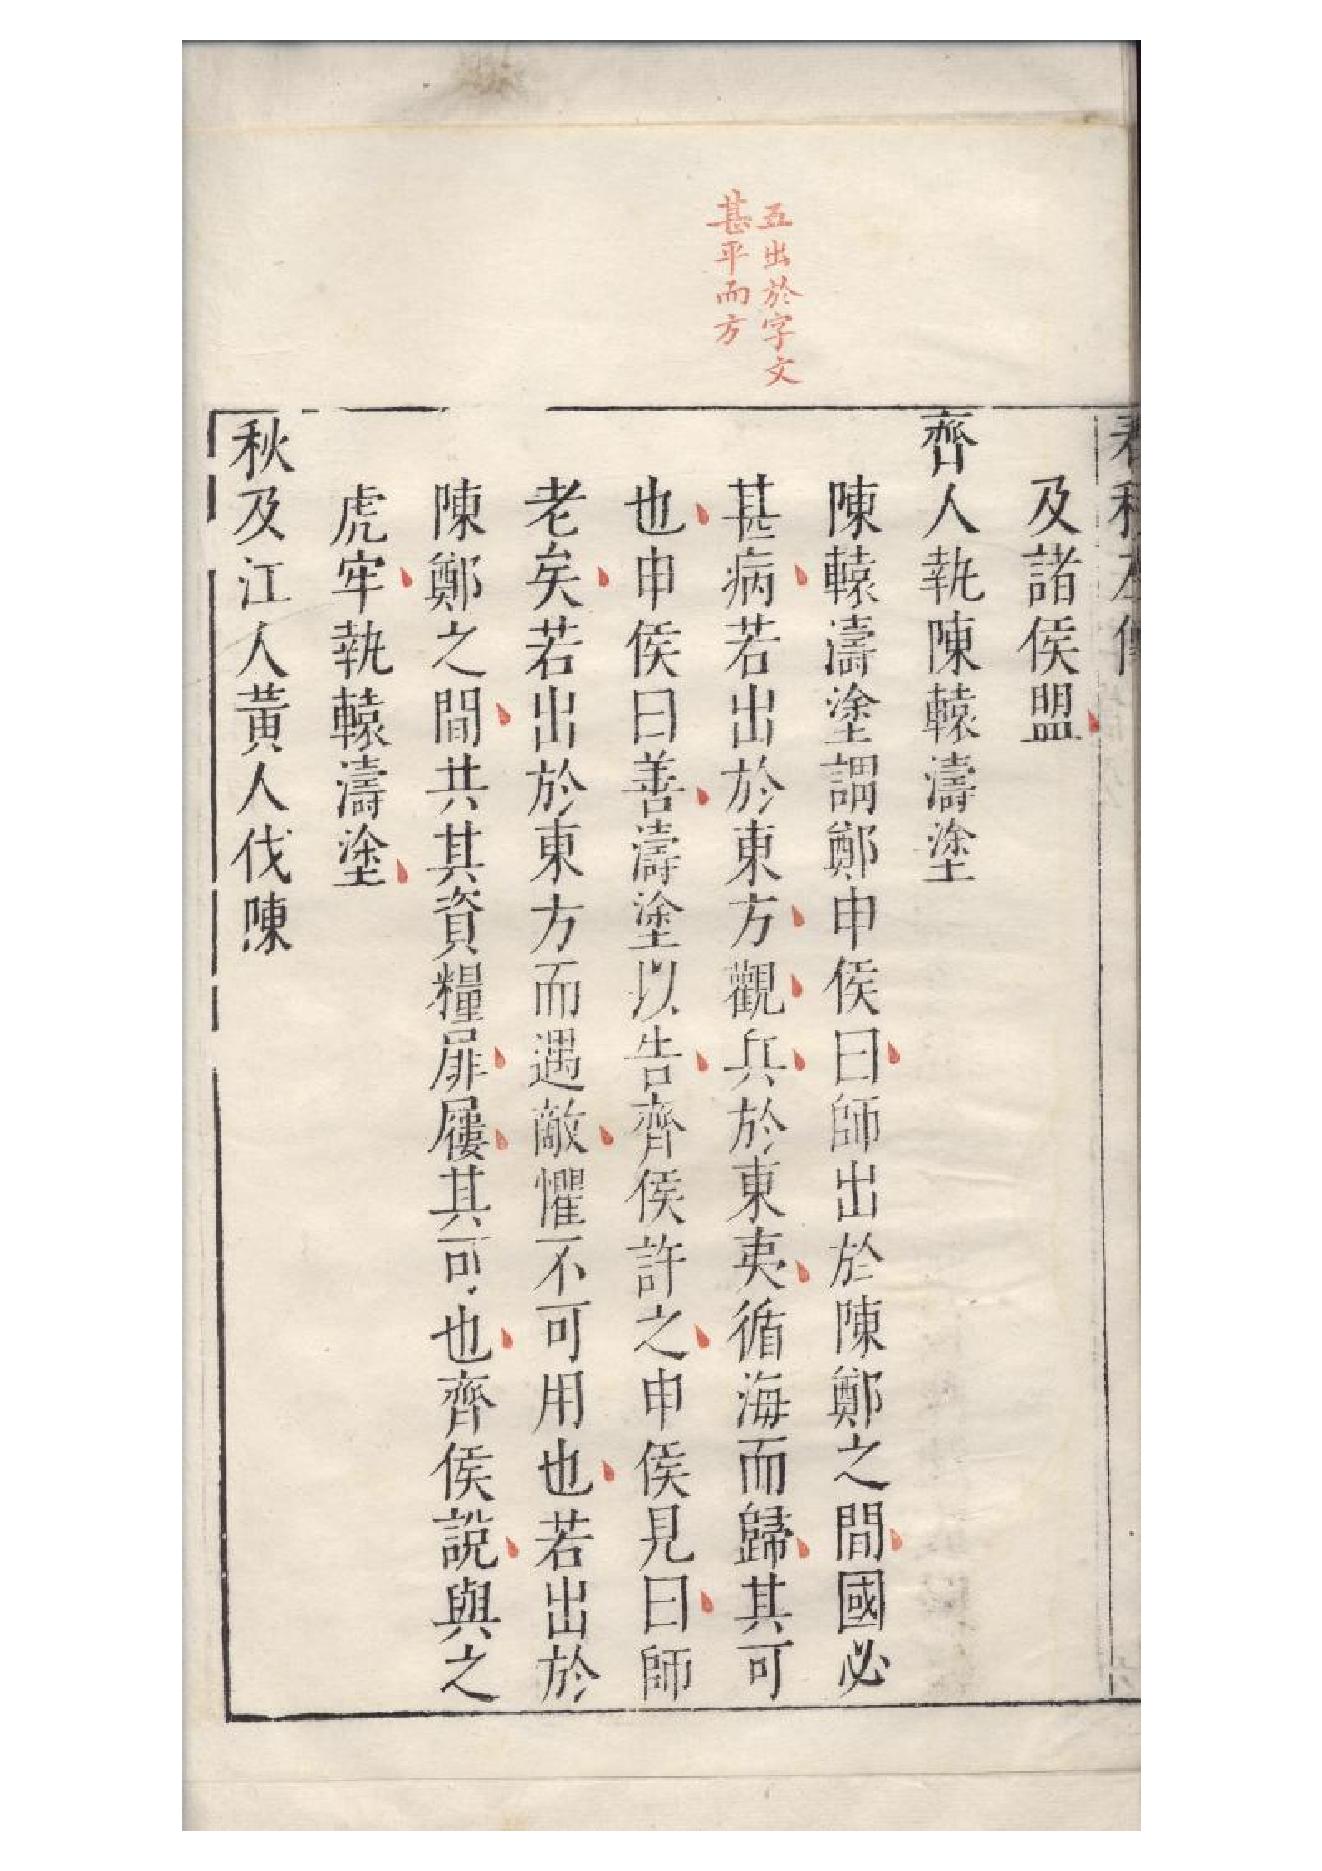 五出於字文
甚平而方
春秋左傳
及諸侯盟
齊人執陳轅濤塗
陳轅濤塗謂鄭申侯曰師出於陳鄭之間國必
甚病若出於東方觀兵於東夷循海而歸其可
也申侯曰善濤塗以告齊侯許之申侯見曰師
老矣若出於東方而遇敵懼不可用也若出於
陳鄭之間共其資糧屝屨其可也齊侯說與之
虎牢執轅濤塗
秋及江人黃人伐陳